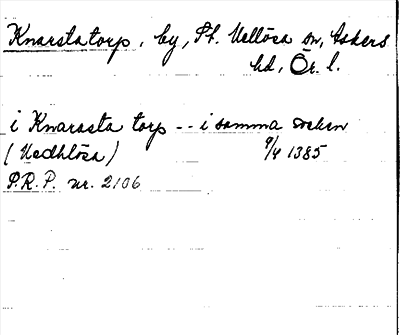 Knarstatorp, by, St. Mellösa sn, Askers
hd, Ör. l.
i Knarasta torp -- i samma soken
(Medhlösa) 9/4 1385
P.R.P. nr. 2106